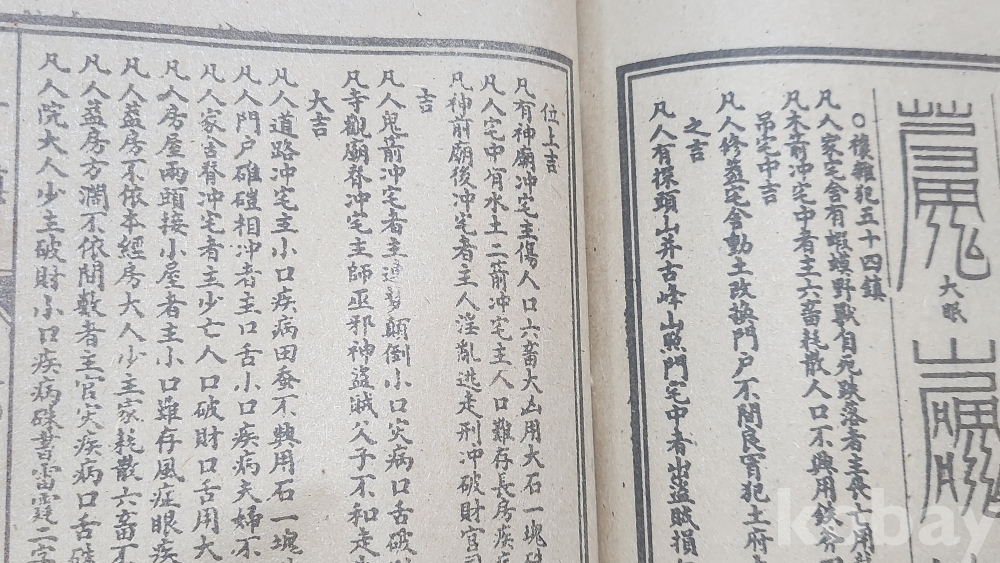 大眠
○復雜犯五十四鎮
凡人家宅舍有蝦蟆野獸自死跌落者主喪亡用
凡木前冲宅中者主六畜耗散人口不興用鐵斧
吊宅中吉
凡人修蓋宅舍動土改換門户不開良宵犯土府
之吉
凡人有探頭山并古峰山照門宅中者出盜賊損
位上吉
凡有神廟冲宅主傷人口六畜大凶用大石一塊硃
凡人宅中有水土二箭冲宅主人口難存長房疾
凡神前廟後冲宅者主人淫亂逃走刑冲破財官司
吉
凡人鬼箭冲宅者主顛倒小口災病口舌破
凡寺觀廟脊冲宅主師巫邪神盜賊父子不和走
大吉
凡人道路冲宅主小口疾病田蚕不興用石一塊
凡人門户碓磑相冲者主口舌小口疾病夫婦不
凡人家舍脊冲宅者主少亡人口破財口舌用大
凡人房屋兩頭接小屋者主小口難存風症眼疾
凡人蓋房不依本經房大人少主家耗散六畜不
凡人蓋房方濶不依間數者主官災疾病口舌硃
凡人院大人少主破財小口疾病硃書雷霆二字
kobay